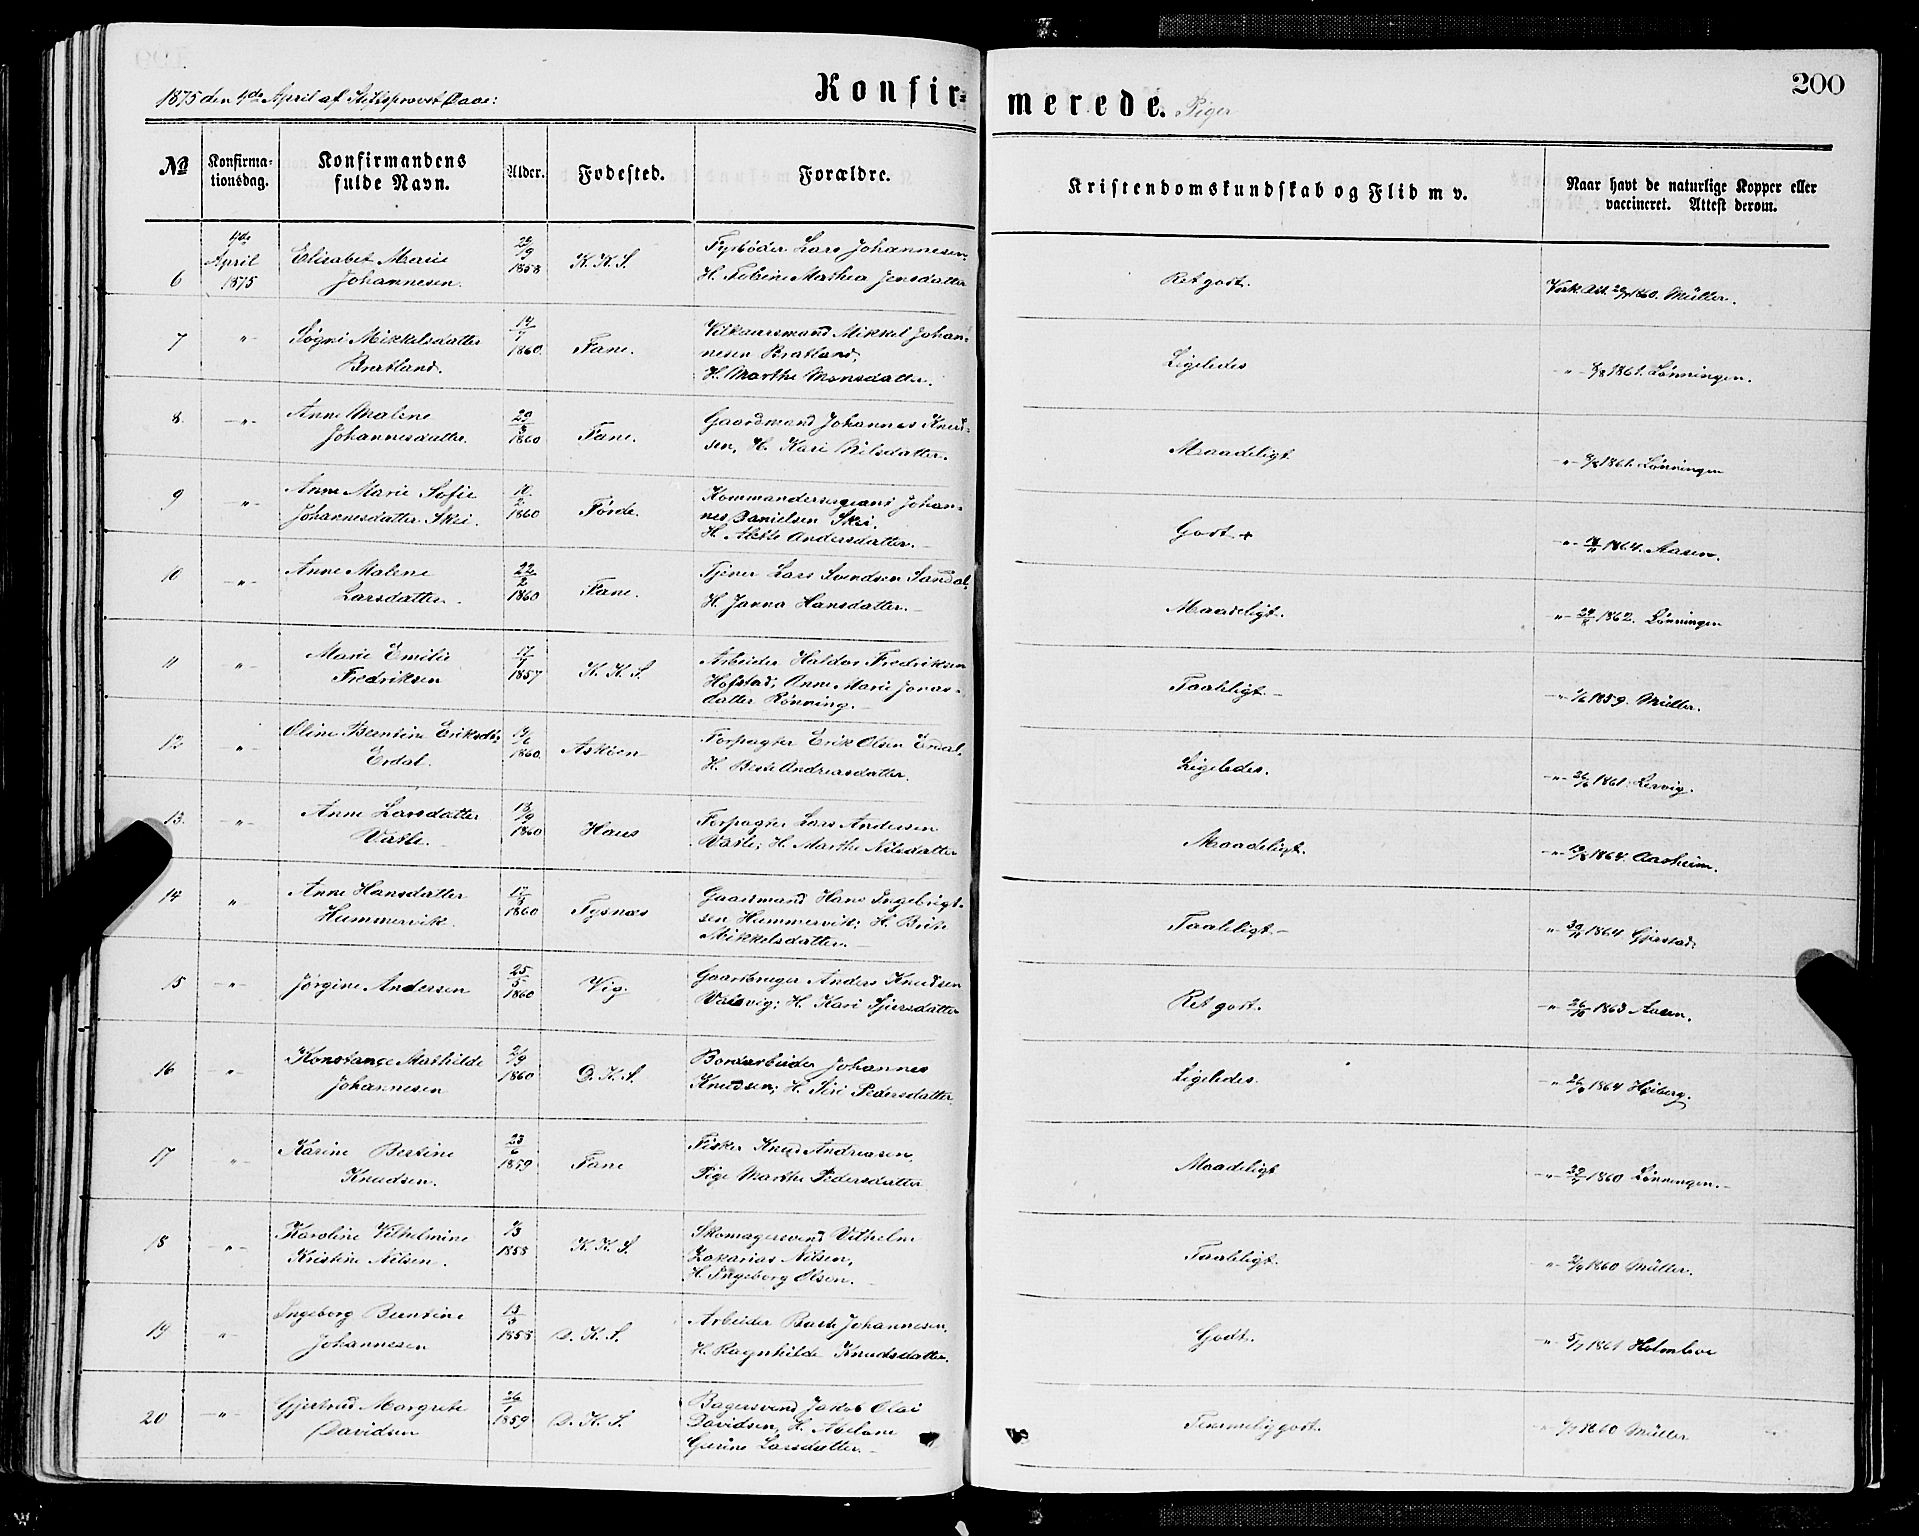 200
1875 den 4de April af Stiftsprovst Daae:
Konfir-
merede. Piger
No
Konfirma-
tionsdag.
Konfirmandens
fulde Navn.
Alder.
Fødested.
Forældre.
Kristendomskundskab og Flid m v.
Naar havt de naturlige Kopper eller
vaccineret. Attest derom.
6
4de
April
1875
Elisabet Marie
Johannesen.
9
1858
K. K. S.
Fyrbøder Lars Johannesen
H. Mathea Jensdatter
Ret godt.
1860. Müller.
7
-"-
Søgni Mikkelsdatter
Bratland.
1860.
Fane.
Vilkaarsmand Mikkel Johan-
nesen Bratland,
H. Marthe Monsdatter.
Ligeledes
-"- 1861. Lønningen.
8.
-"-
Anne Malene
Johannesdatter.
1860
Fane.
Gaardmand Johannes Knud-
sen, H. Kari Nilsdatter.
Maadeligt
-"- 1861. Lønningen
9
-"-
Anne Marie Sofie
Johannesdatter Skei.
2
1860
Førde.
Kommandersergeant Johan-
nes Danielsen Skei.
H. Andersdatter.
Godt +
-"- 1864. Aasen.
10
-"-
Anne Malene
Larsdatter.
22
2
1860
Fane.
Tjener Lars Svendsen Sandal,
H. Janna Hansdatter.
Maadeligt.
-"- 1862. Lønningen
11
-"-
Marie Emilie
Fredriksen
17
1857
K. K. S.
Arbeider Haldor Fredriksen
Hofstad; Anne Marie Jonas-
datter Rønning.
Taaleligt
-"- 1859. Müller.
12
-"-
Oline Berntine Eriksdtr
Erdal.
1860.
Askøen
Forpagter Erik Olsen Erdal,
H. Andreasdatter.
Ligeledes.
-"- 1861. Lervig.
13.
-"-
Anne Larsdatter
Vatle.
9
1860
Haus
Forpagter Lars Andersen
Vatle; H. Marthe Nilsdatter
Maadeligt.
-"- 1864. Aasheim.
14
-"-
Anne Hansdatter
Hummervik.
1860
Tysnæs
Gaardmand Hans Ingebrigt-
sen Hummervik; H. Brite
Mikkelsdatter.
Taaleligt
-"- 1864 Gjerstad.
15
-"-
Jørgine Andersen
25
5
1860
Vig.
Gaardbruger Anders Knudsen
Valevig; H. Kari
Ret godt.
-"- 1863 Aasen.
16
-"-
Konstance Mathilde
Johannesen
9
1860
D. K. S.
Bordarbeider Johannes
Knudsen; H. Siri Pedersdatter
Ligeledes
-"- 1864 Heiberg.
17
-"-
Karine Bertine
Knudsen.
23
6
1859
Fane
Fisker Knud Andreasen,
Pige Marthe Pedersdatter
Maadeligt
-"- 1860 Lønningen.
18
-"-
Karoline Vilhelmine
Kristine Nilsen.
1858
K. K. S.
Skomagersvend Vilhelm
Zakarias Nilsen,
H. Ingeborg Olsen.
Taaleligt.
-"- 1860 Müller.
19
-"-
Ingeborg Berntine
Johannesen
13
3
1858
D. K. S.
Arbeider Johannesen,
H. Ragnhilde Knudsdatter.
Godt.
-"- 1861 Holmboe
20
-"-
Gjertrud Margrete
Davidsen
26
1
1859
D. K. S.
Bagersvend Jakob Olai
Davidsen, H. Abelone
Larsdatter.
Temmelig godt.
1860 Müller